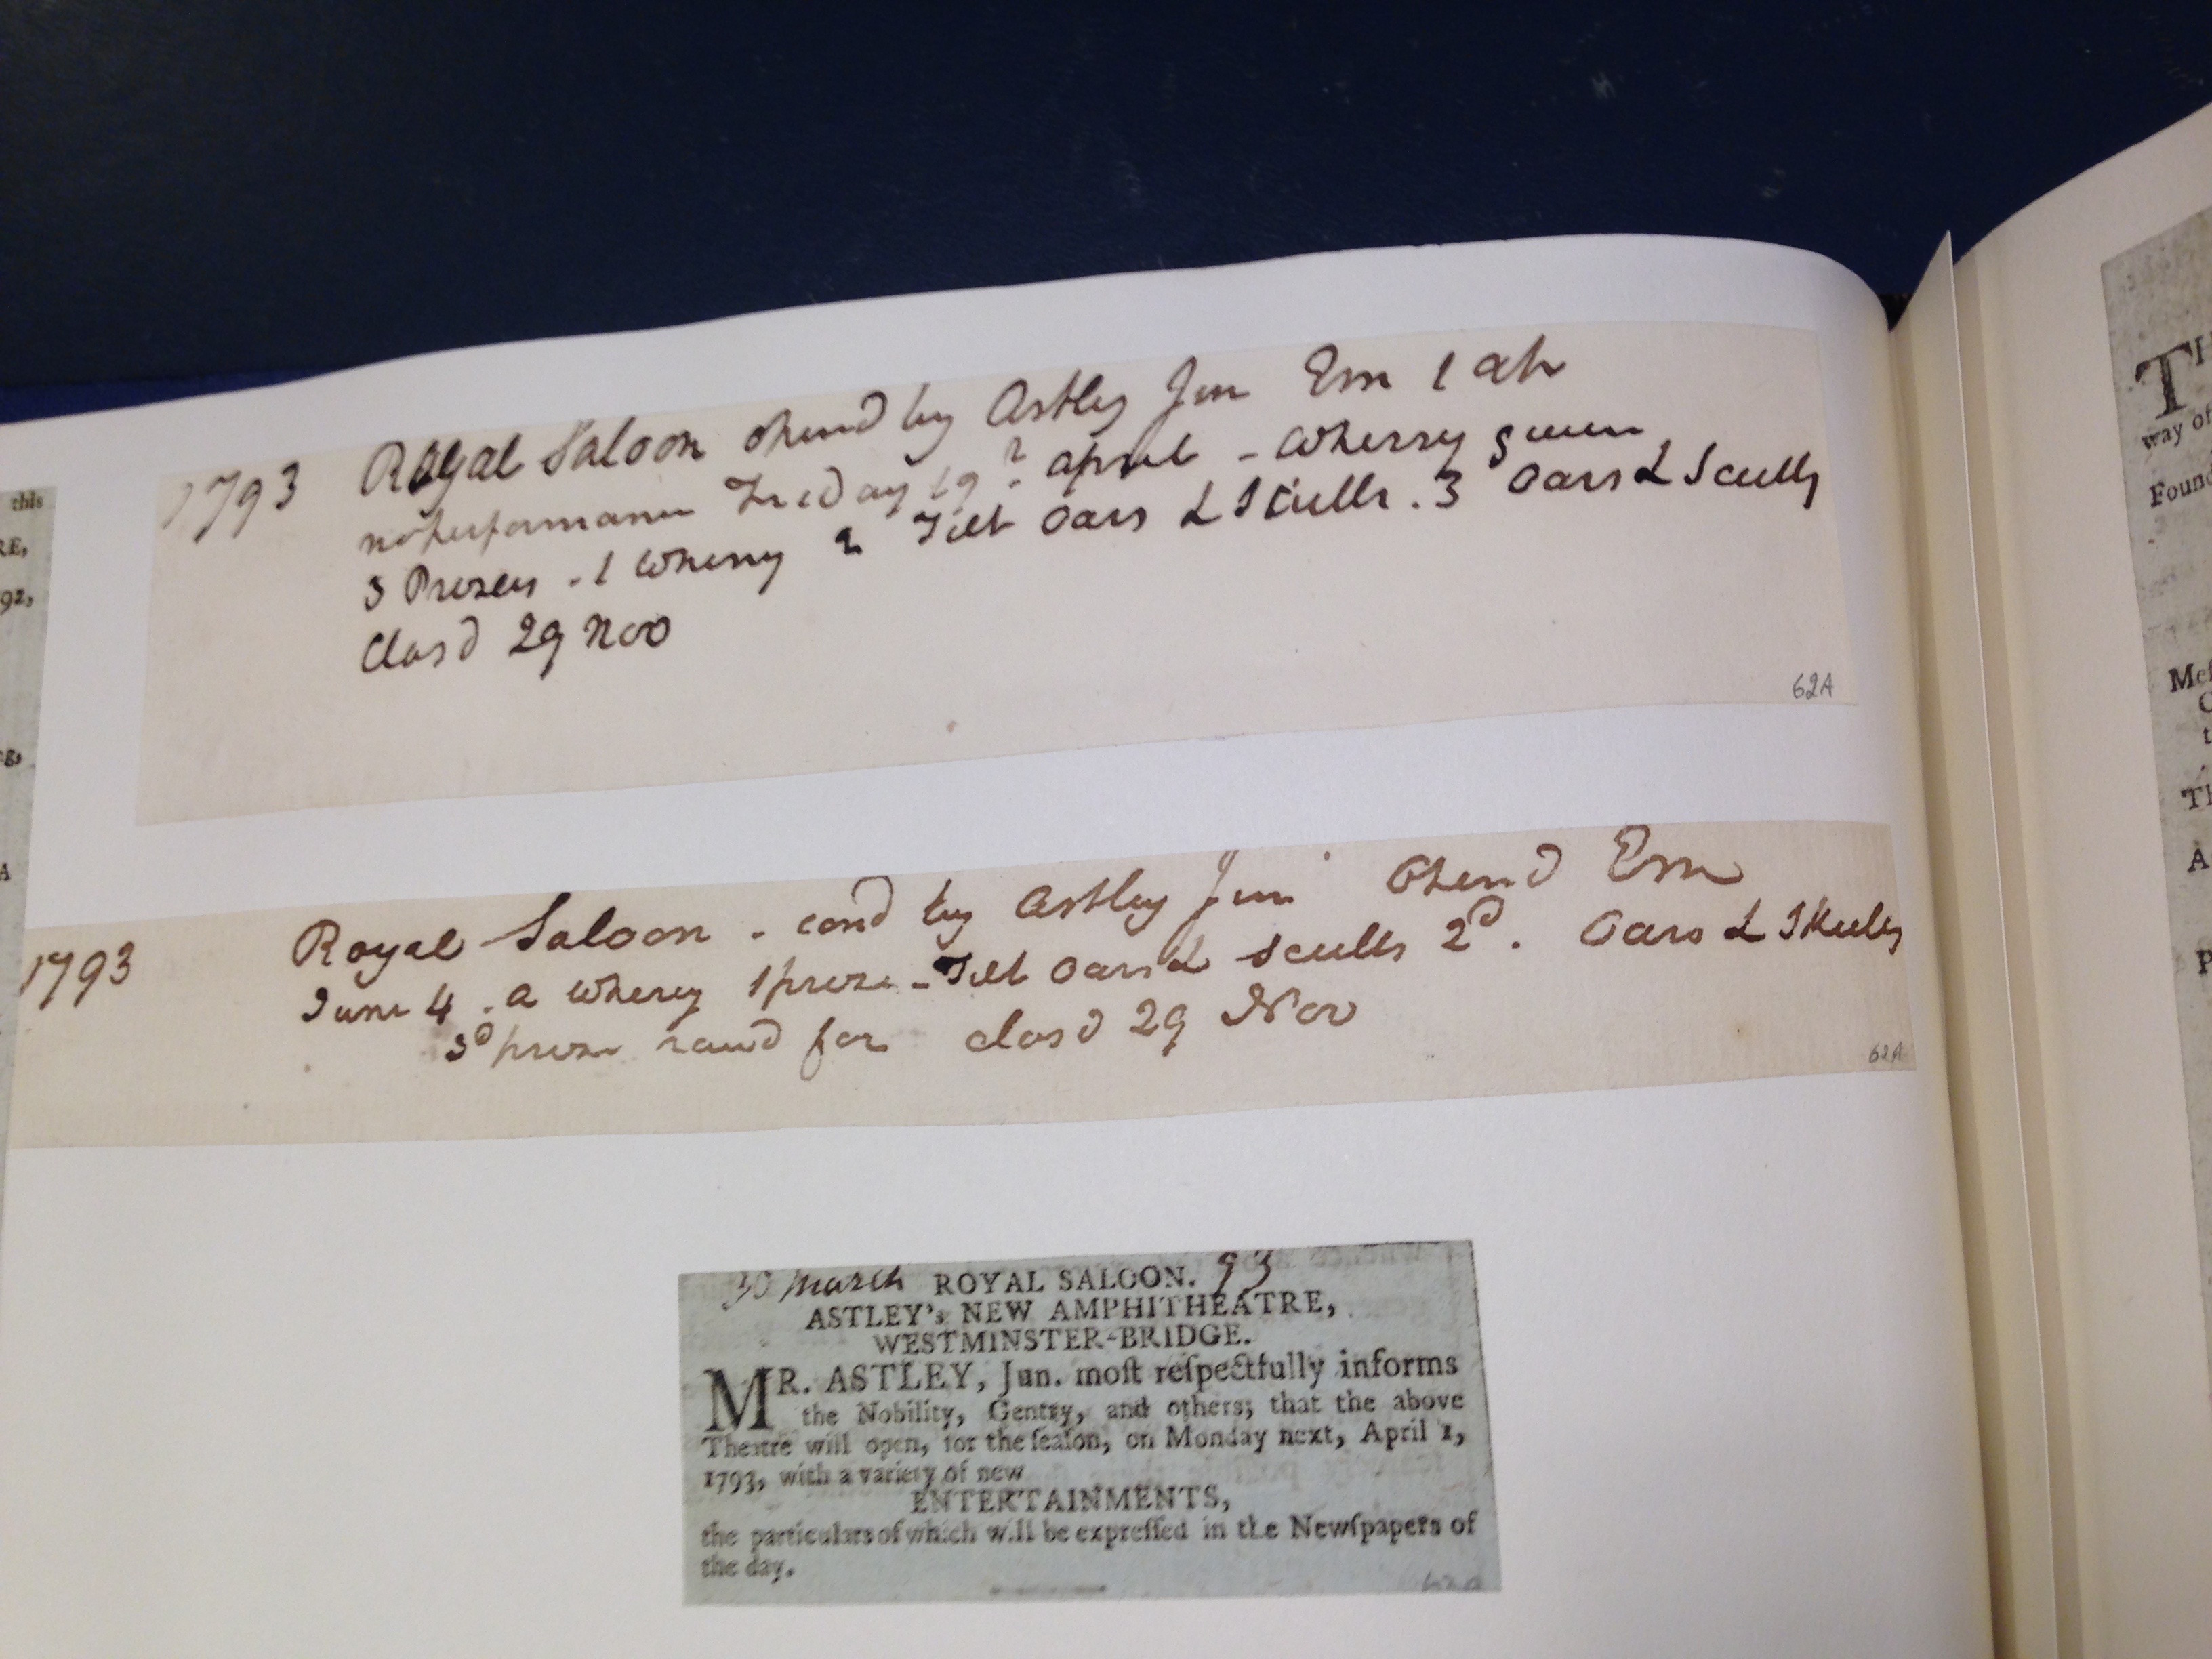 1793 Royal Saloon opend by Astley Jun Em 1 ap
no performance Friday 19? april - Wherry given
3 Prizes - 1 Wherry 2 Tilt Oars & Skulls . 3 Oars & Sculls
Closd 29 Nov
62A
1793 Royal Saloon . cond by Astley Jun Opend Em
June 4 . a Wherey 1 prize - Tilt Oars & Sculls 2d . Oars & Skulls
3d prize rowd for closd 29 Nov
62A
30 March ROYAL SALOON. 93
ASTLEY's NEW AMPHITHEATRE,
WESTMINSTER-BRIDGE.
MR. ASTLEY, Jun. moſt reſpectfully informs
the Nobility, Gentry, and others; that the above
Theatre will open, for the ſeaſon, on Monday next, April 1,
1793, with a variety of new
ENTERTAINMENTS,
the particulars of which will be expreſſed in the Newſpapers of
the day.
this
RE,
92,
A
way of
Found
A